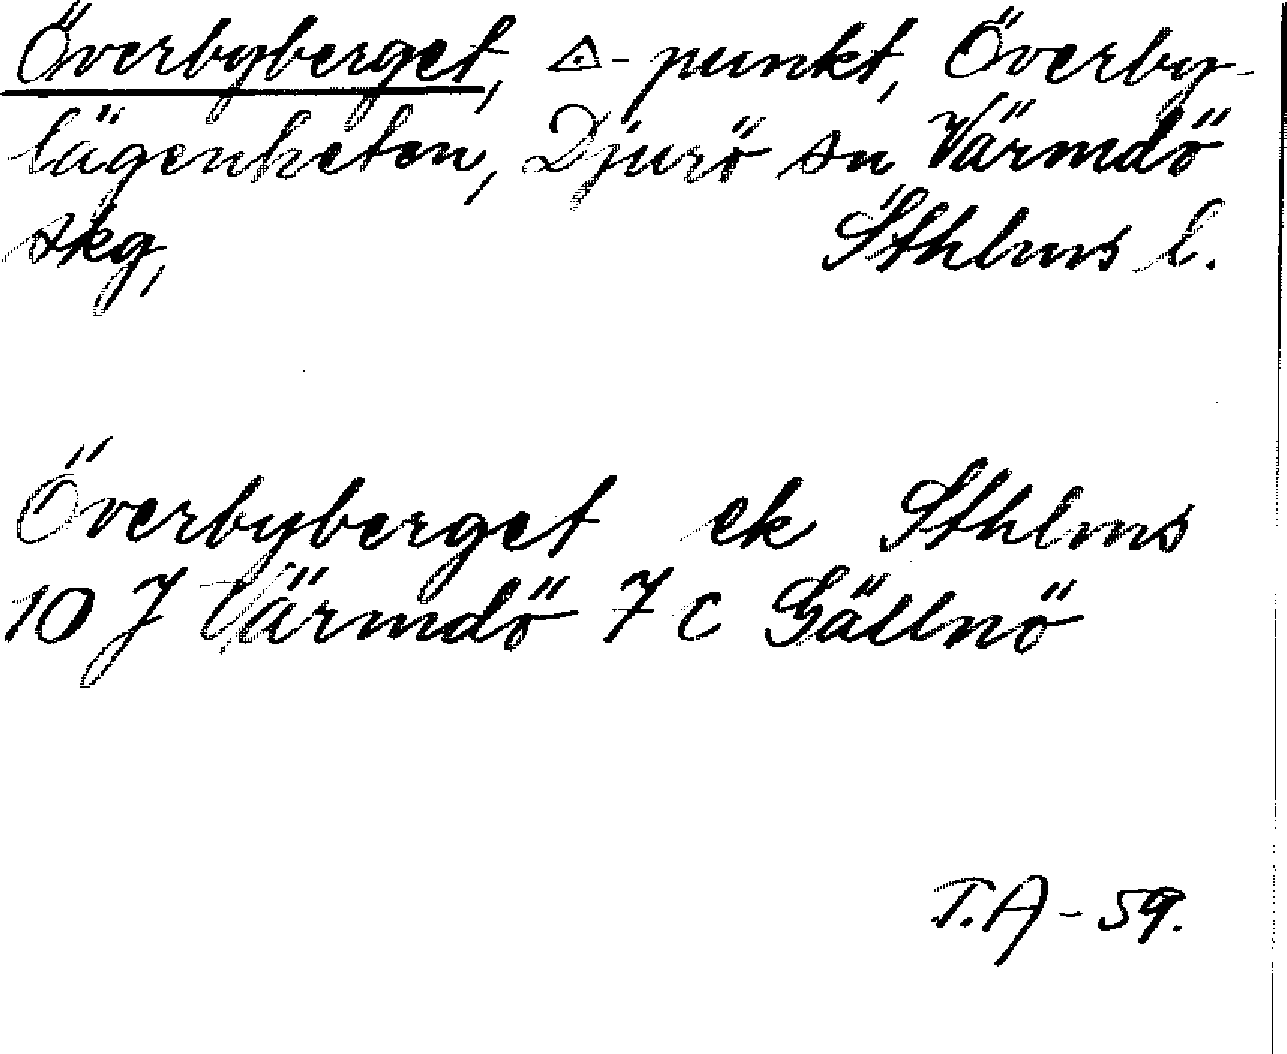 Överbyberget, △-punkt, Överby-
lägenheten, Djurö sn Värmdö
skg, Sthlms l.
Överbyberget ek Sthlms
10 J Värmdö 7 c Gällnö
T.A - 59.